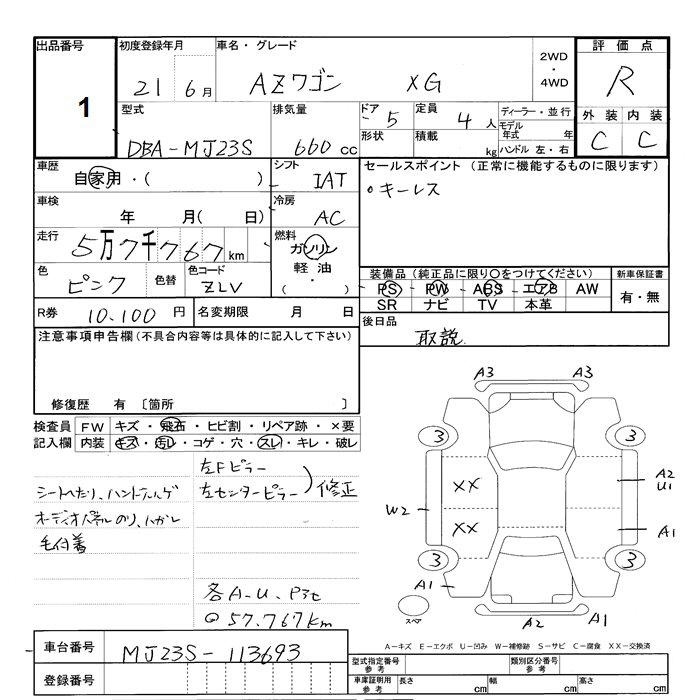 出品番号 1
初度登録年月 21年 6月
車名・グレード AZワゴン XG
2WD
4WD
評価点 R
型式 DBA-MJ23S
排気量 660 cc
ドア 5
形状
定員 4人
積載 kg
ディーラー・並行
モデル年式 年
ハンドル 左・右
外装 内装
C C
車歴 自家用・( )
シフト IAT
セールスポイント (正常に機能するものに限ります)
○キーレス
車検 年 月( 日)
冷房 AC
走行 5万7千767km
燃料 ガソリン
軽油
( ・ )
色 ピンク
色替
色コード ZLV
装備品 (純正品に限り○をつけてください)
新車保証書
PS PW ABS エアB AW
SR ナビ TV 本革
有・無
R券 10,100 円
名変期限 月 日
後日品 取説
注意事項申告欄 (不具合内容等は具体的に記入して下さい)
修復歴 有 〔箇所 〕
検査員記入欄
FW キズ・飛石・ヒビ割・リペア跡・×要
内装 キズ・汚レ・コゲ・穴・スレ・キレ・破レ
左Fピラー
左センターピラー 修正
シートへたり、ハンドルハゲ
オーディオパネルのり、ハガレ
毛付着
各A-U、P3t
@57,767km
A3 A3
3 3
XX
A2
U1
W2
XX
A1
3 3
A1
スペア
A2
A1
A-キズ E-エクボ U-凹み W-補修跡 S-サビ C-腐食 XX-交換済
車台番号 MJ23S-113693
登録番号
型式指定番号 参考
類別区分番号 参考
車庫証明用 参考 長さ cm 幅 cm 高さ cm